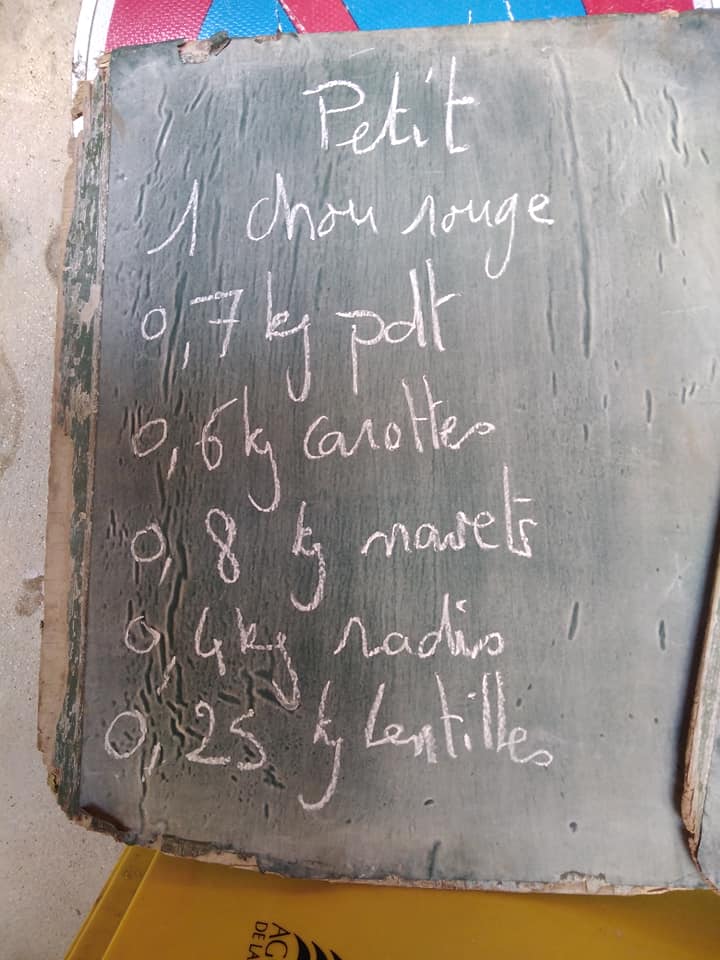 Petit
1 chou rouge
0,7 kg pdt
0,6 kg carottes
0,8 kg navets
0,4 kg radis
0,25 kg lentilles
AG
DE LA